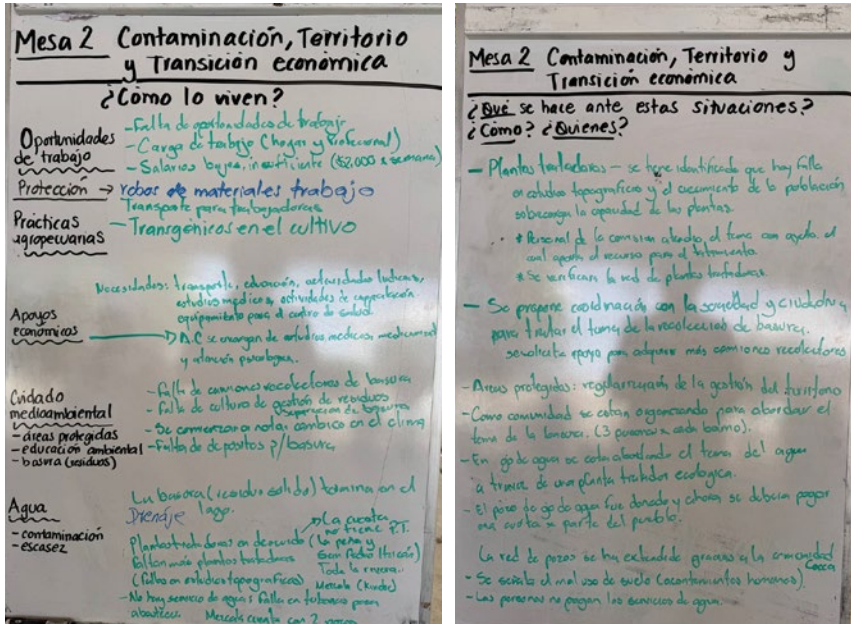 Mesa 2 Contaminación, Territorio
y Transición económica
¿Cómo lo viven?
Oportunidades
de trabajo
- Falta de oportunidades de trabajo
- Carga de trabajo (hogar y profesional)
- Salarios bajos, insuficiente ($2,000 x semana)
Protección → robos de materiales trabajo
Transporte para trabajadores
Prácticas
agropecuarias
- Transgénicos en el cultivo
Necesidades: transporte, educación, actividades ludicas,
estudios medicos, actividades de capacitación
equipamiento para el centro de salud.
Apoyos
económicos
A.C se encargan de estudios medicos, medicamento
y atención psicologica.
Cuidado
medioambiental
- áreas protegidas
- educación ambiental
- basura (residuos)
- Falta de camiones recolectores de basura
- Falta de cultura de gestión de residuos
separación de basura
- Se comienzan a notar cambios en el clima
- Falta de depositos p/basura
Agua
- contaminación
- escasez
La basura (residuo solido) termina en el
Drenaje lago.
La cuenca
no tiene P.T.
Plantas tratadoras en descuido (La peña y
San Pedro
Faltan más plantas tratadoras
Toda la
(fallas en estudios topograficos)
Mercado (Kinder)
- No hay servicio de agua; falla en tuberias para
abastecer. cuenta con 2
Mesa 2 Contaminación, Territorio y
Transición económica
¿Qué se hace ante estas situaciones?
¿Cómo? ¿Quienes?
- Plantas tratadoras - se tiene identificado que hay falla
en estudios topograficos y el crecimiento de la población
sobrecarga la capacidad de las plantas.
* Personal de la comision atendio el tema con ayuda, el
cual aporta el recurso para el tratamiento.
* Se verifican la red de plantas tratadoras.
- Se propone coordinación con la sociedad y ciudadania
para tratar el tema de la recolección de basura.
se solicita apoyo para adquirir más camiones recolectores
- Areas protegidas: regularización de la gestión del territorio
- Como comunidad se estan organizando para abordar el
tema de la basura. (3 personas x cada barrio).
- En ojo de agua se esta abordando el tema del agua
a traves de una planta tratadora ecologica.
- El pozo de ojo de agua fue donado y ahora se deberia pagar
una cuota x parte del pueblo.
La red de pozos se ha extendido gracias a la comunidad
- Se señala el mal uso de suelo (asentamientos humanos).
- Las personas no pagan los servicios de agua.